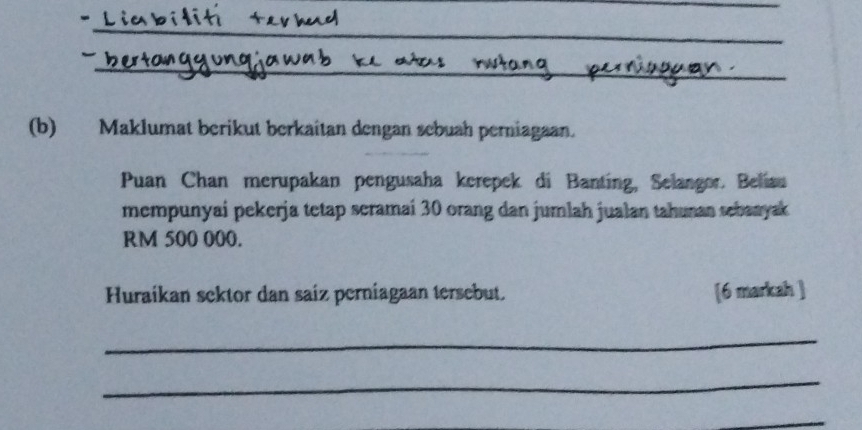 - Liabiliti terhad
- bertanggungjawab ke atas hutang perniagaan.
(b) Maklumat berikut berkaitan dengan sebuah perniagaan.
Puan Chan merupakan pengusaha kerepek di Banting, Selangor. Beliau
mempunyai pekerja tetap seramai 30 orang dan jumlah jualan tahunan sebanyak
RM 500 000.
Huraikan sektor dan saiz perniagaan tersebut. [6 markah]